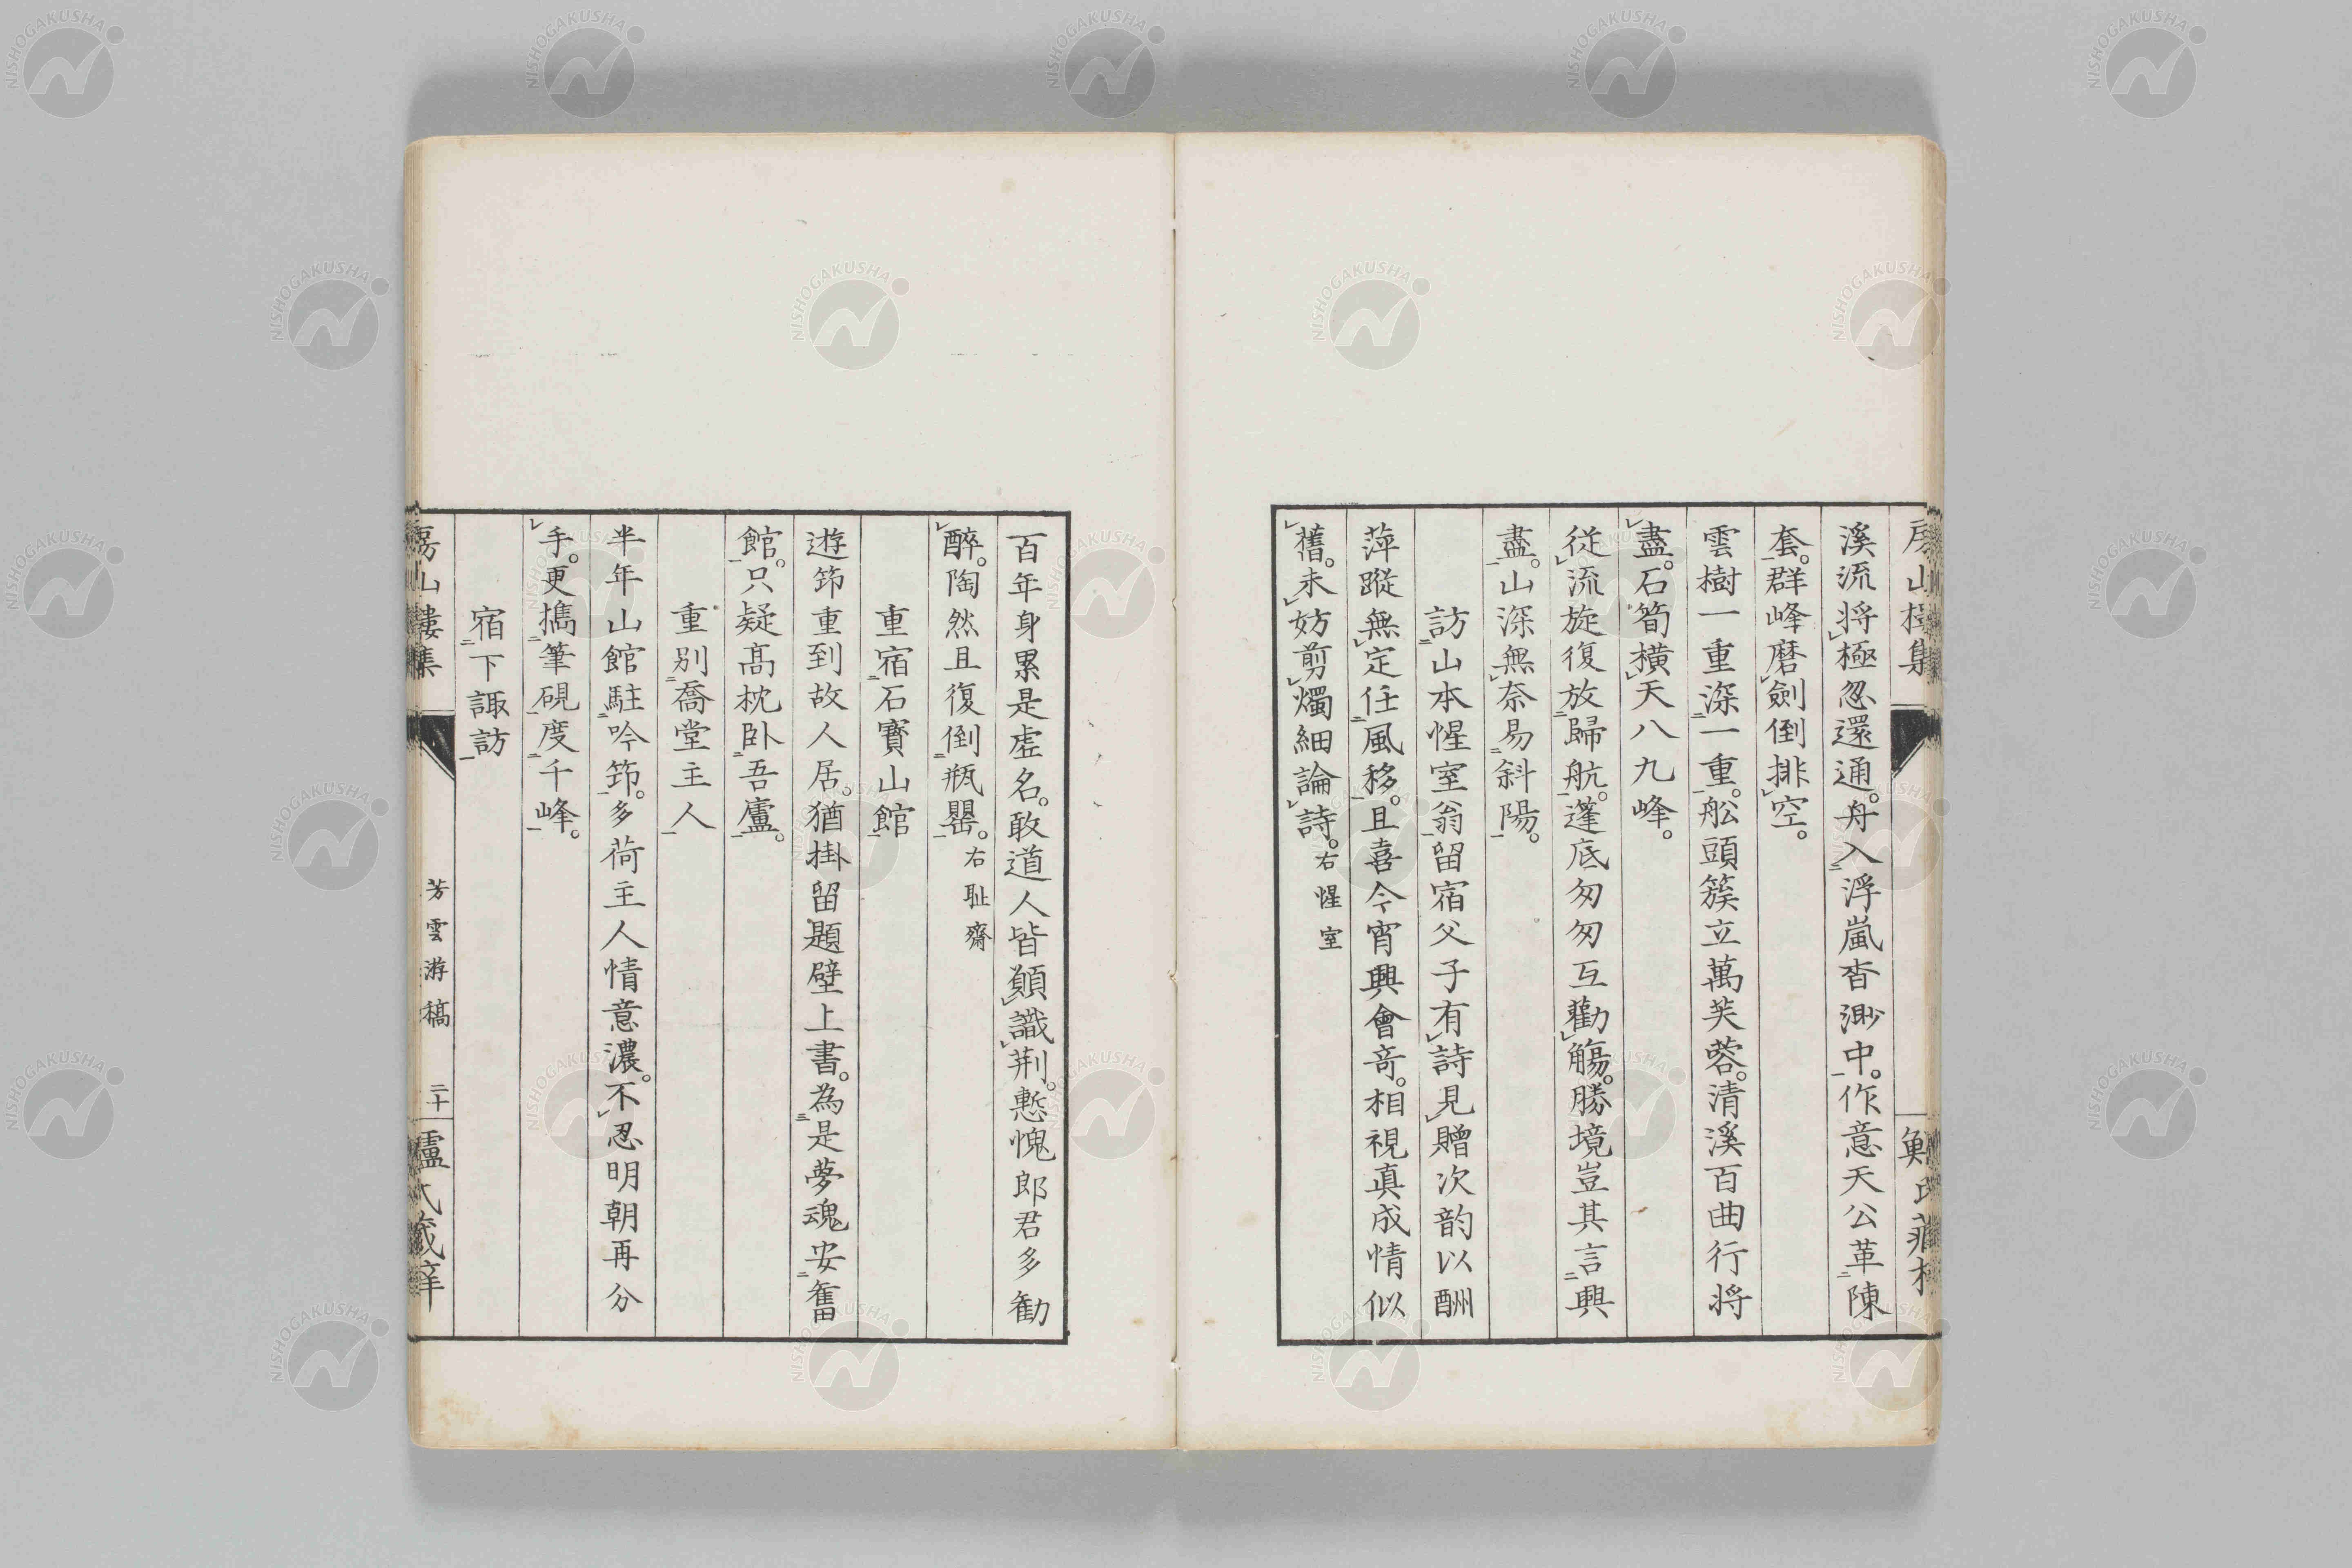 溪流将極忽還通。舟入浮嵐杳渺中。作意天公革陳
套。群峰磨劍倒排空。
雲樹一重深一重。舩頭簇立萬芙蓉。清溪百曲行将
盡。石筍横天八九峰。
従流旋復放歸航。蓬底匆匆互勸觴。勝境豈其言興
盡。山深無奈易斜陽。
訪山本惺室翁留宿父子有詩見贈次韵以酬
萍蹤無定任風移。且喜今宵興會竒。相視真成情似
舊。未妨剪燭細論詩。右惺室
百年身累是虚名。敢道人皆願識荆。慙愧郎君多勸
醉。陶然且復倒瓶罌。右耻齋
重宿石寳山館
遊笻重到故人居。猶掛留題壁上書。為是夢魂安舊
館。只疑髙枕卧吾廬。
重别喬堂主人
半年山館駐吟笻。多荷主人情意濃。不忍明朝再分
手。更攜筆硯度千峰。
宿下諏訪
房山樓集
芳雲游稿
二十